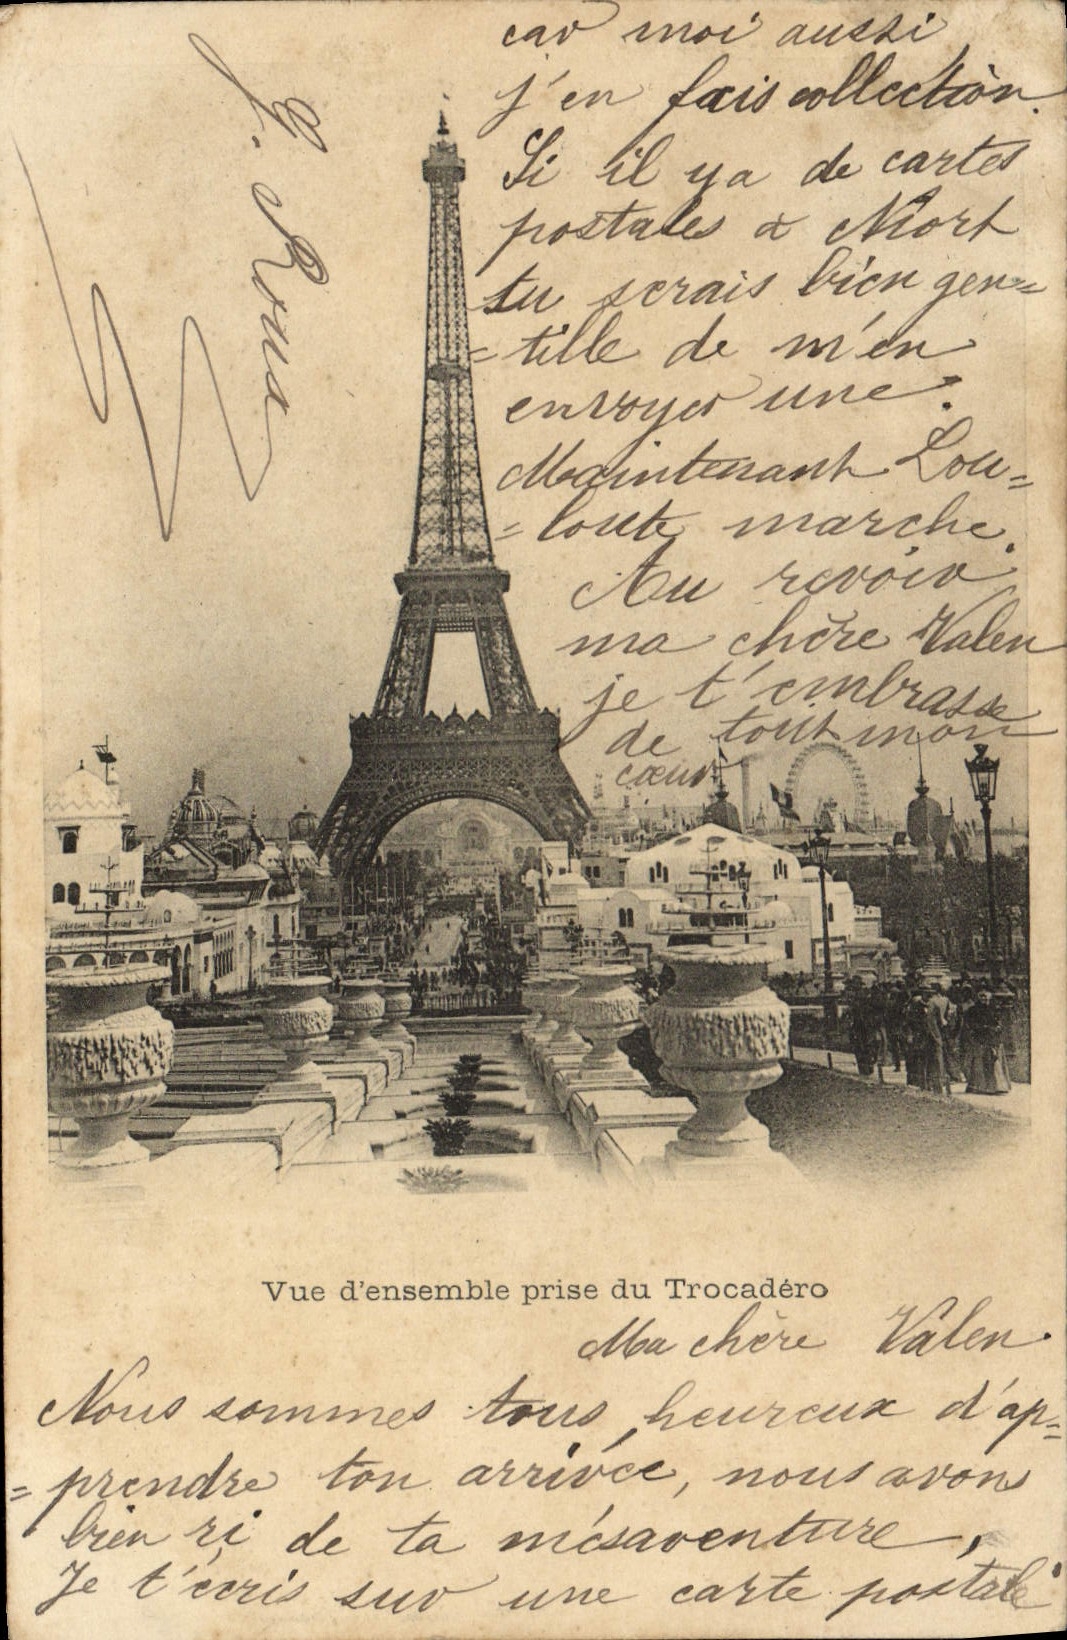 Vue d'ensemble prise du Trocadéro
Ma chère Valen.
Nous sommes tous heureux d'ap=
=prendre ton arrivée, nous avons
bien ri de ta mésaventure,
Je t'écris sur une carte postale
car moi aussi
j'en fais collection.
Si il y a de cartes
postales à Niort
tu serais bien gen=
=tille de m'en
envoyer une.
Maintenant Lou=
=loute marche.
Au revoir
ma chère Valen
je t'embrasse
de tout mon
cœur